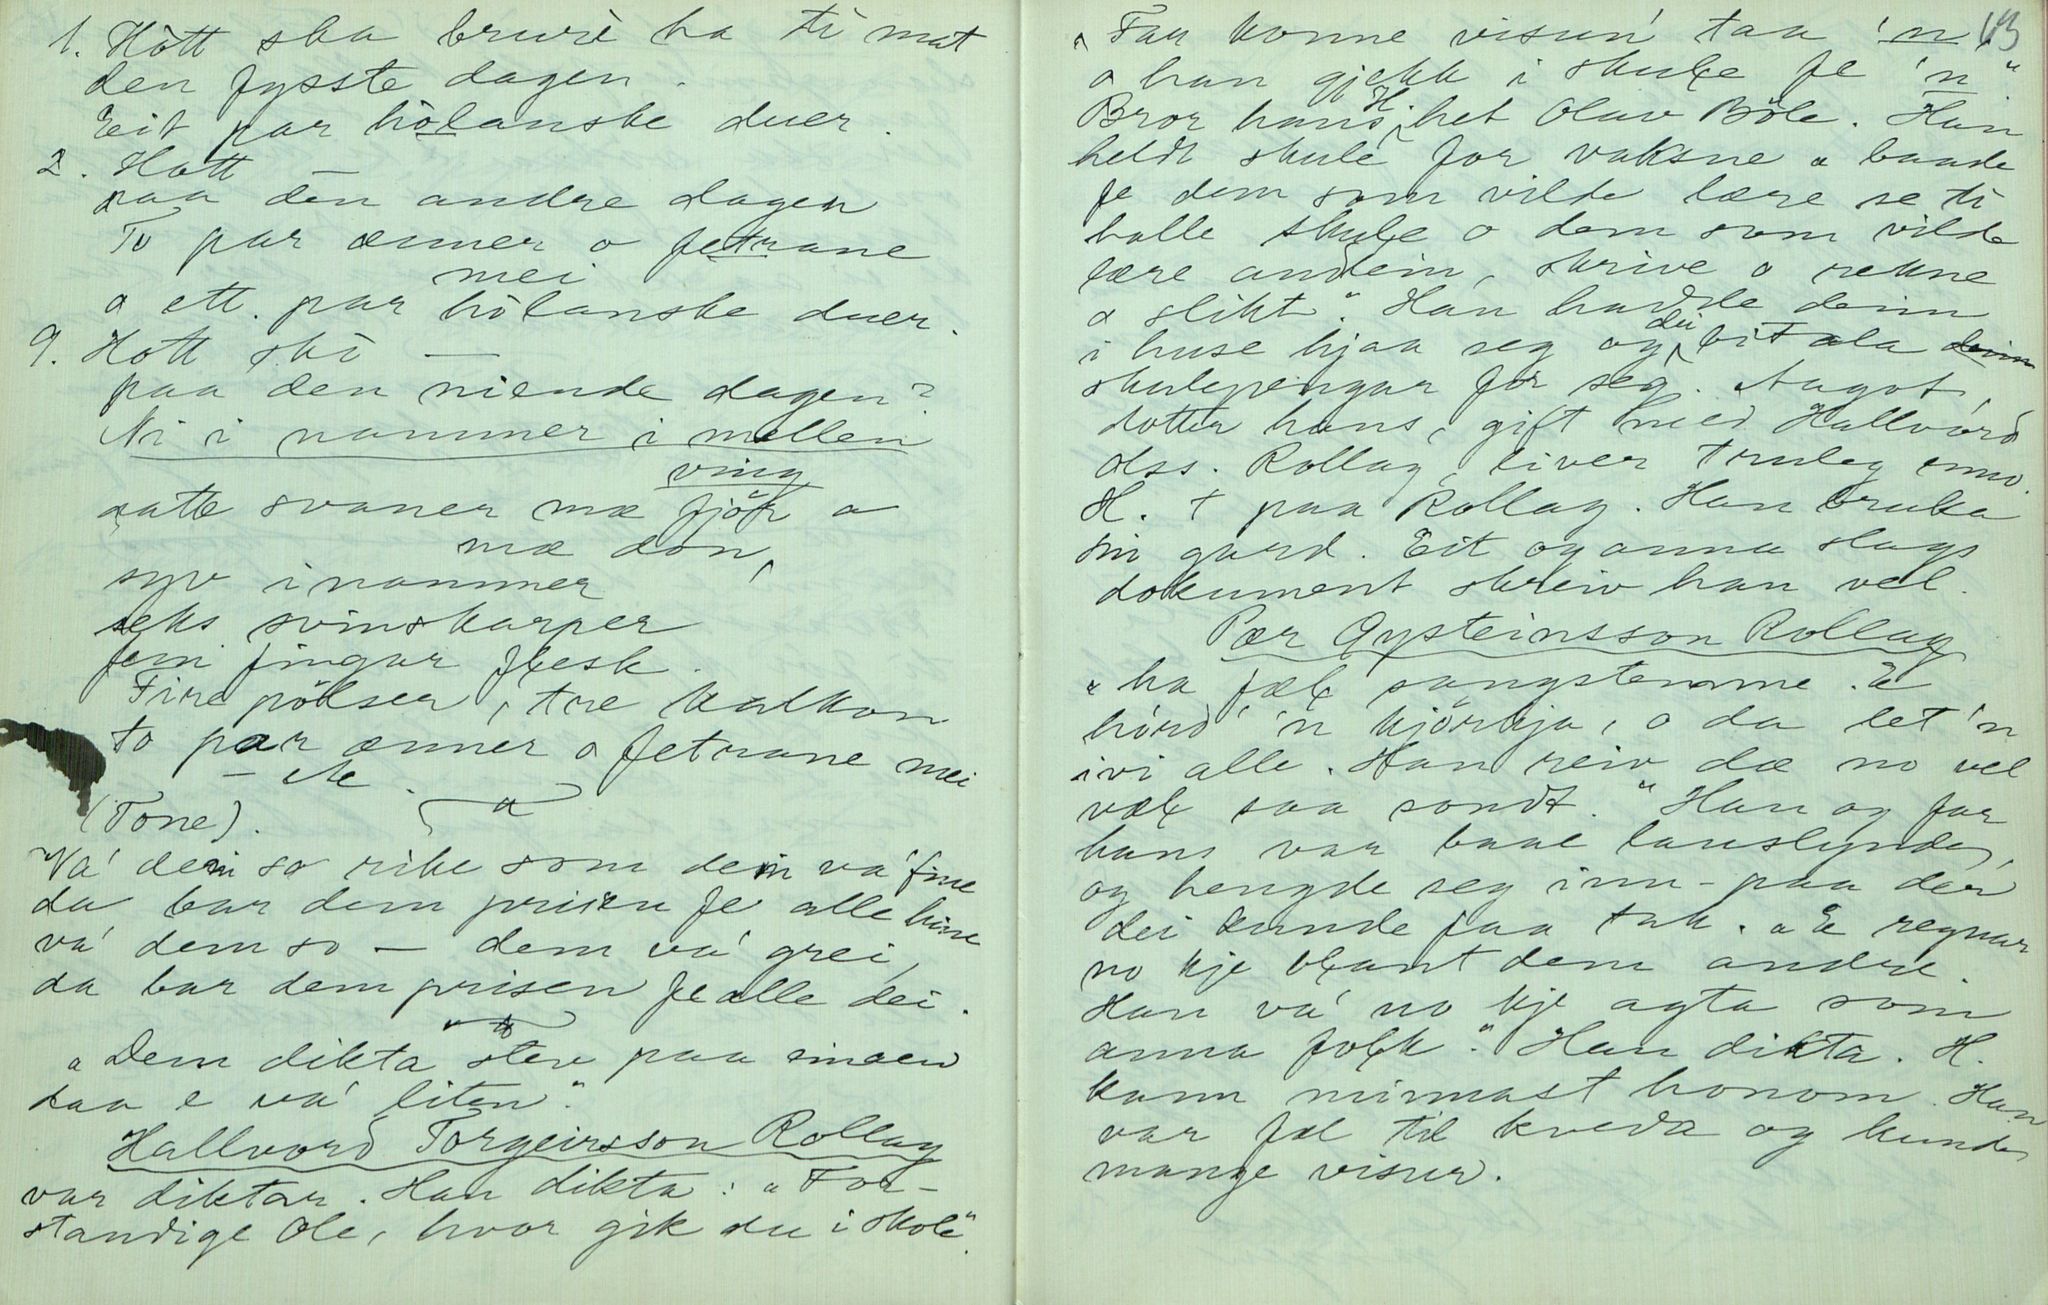 1. Hött ska bruri ha ti mat
den fysste dagen.
Eit par hölanske duer.
2. Hott —
paa den andre dagen
To par ænner o fetrane
mei
o ett. par hölanske duer.
9. Hott ska —
paa den niende dagen?
Ni i nammer i mellen
ving
aatte svaner mæ fjör o
mæ don,
syv i nammer
seks svinskarper
fem fingar flesk.
Fire pölser, tre kalkon
to par ænner o fetrane mei
— etc.
(Tone).
Va' dem so rike som dem va' fine
da bar dem prisen fe alle hine
va' dem so — dem va' grei,
da bar dem prisen fe alle dei.
"Dem dikta stev paa
daa e va' liten".
Hallvord Torgeirsson Rollag
var diktar. Han dikta: "For-
standige Ole, hvor gik du i skole".
13
"Faa konne visun' taa 'n,
o han gjekk i skule fe 'n".
Bror hans H. het Olav Böle. Han
heldt skule for vaksne "baade
fe dem som vilde lære se ti
halle skule o dem som vilde
lære andein, skrive o rekne
o slikt". Han hadde deim
i huse hjaa seg og dei bitala deim
skulepengar for seg. Aagot,
dotter hans, gift med Hallvord
Olss. Rollag, liver truleg enno.
H. + paa Rollag. Han bruka
sin gard. Eit og anna slags
dokument skreiv han vel.
Pær Øysteinsson Rollag
"ha fæl sangstemme. E
hörd' 'n kjörkja, o da let 'n
ivi alle. Han reiv dæ no vel
væl saa sondt." Han og far
hans var baae lauslynde,
og hengde seg inn-paa der
dei kunde faa tak. "E regnar
no kje blant dem andre.
Han va' no kje agta som
anna folk." Han dikta. H.
kann minnast honom. Han
var fæl til kveda og kunde
mange visur.